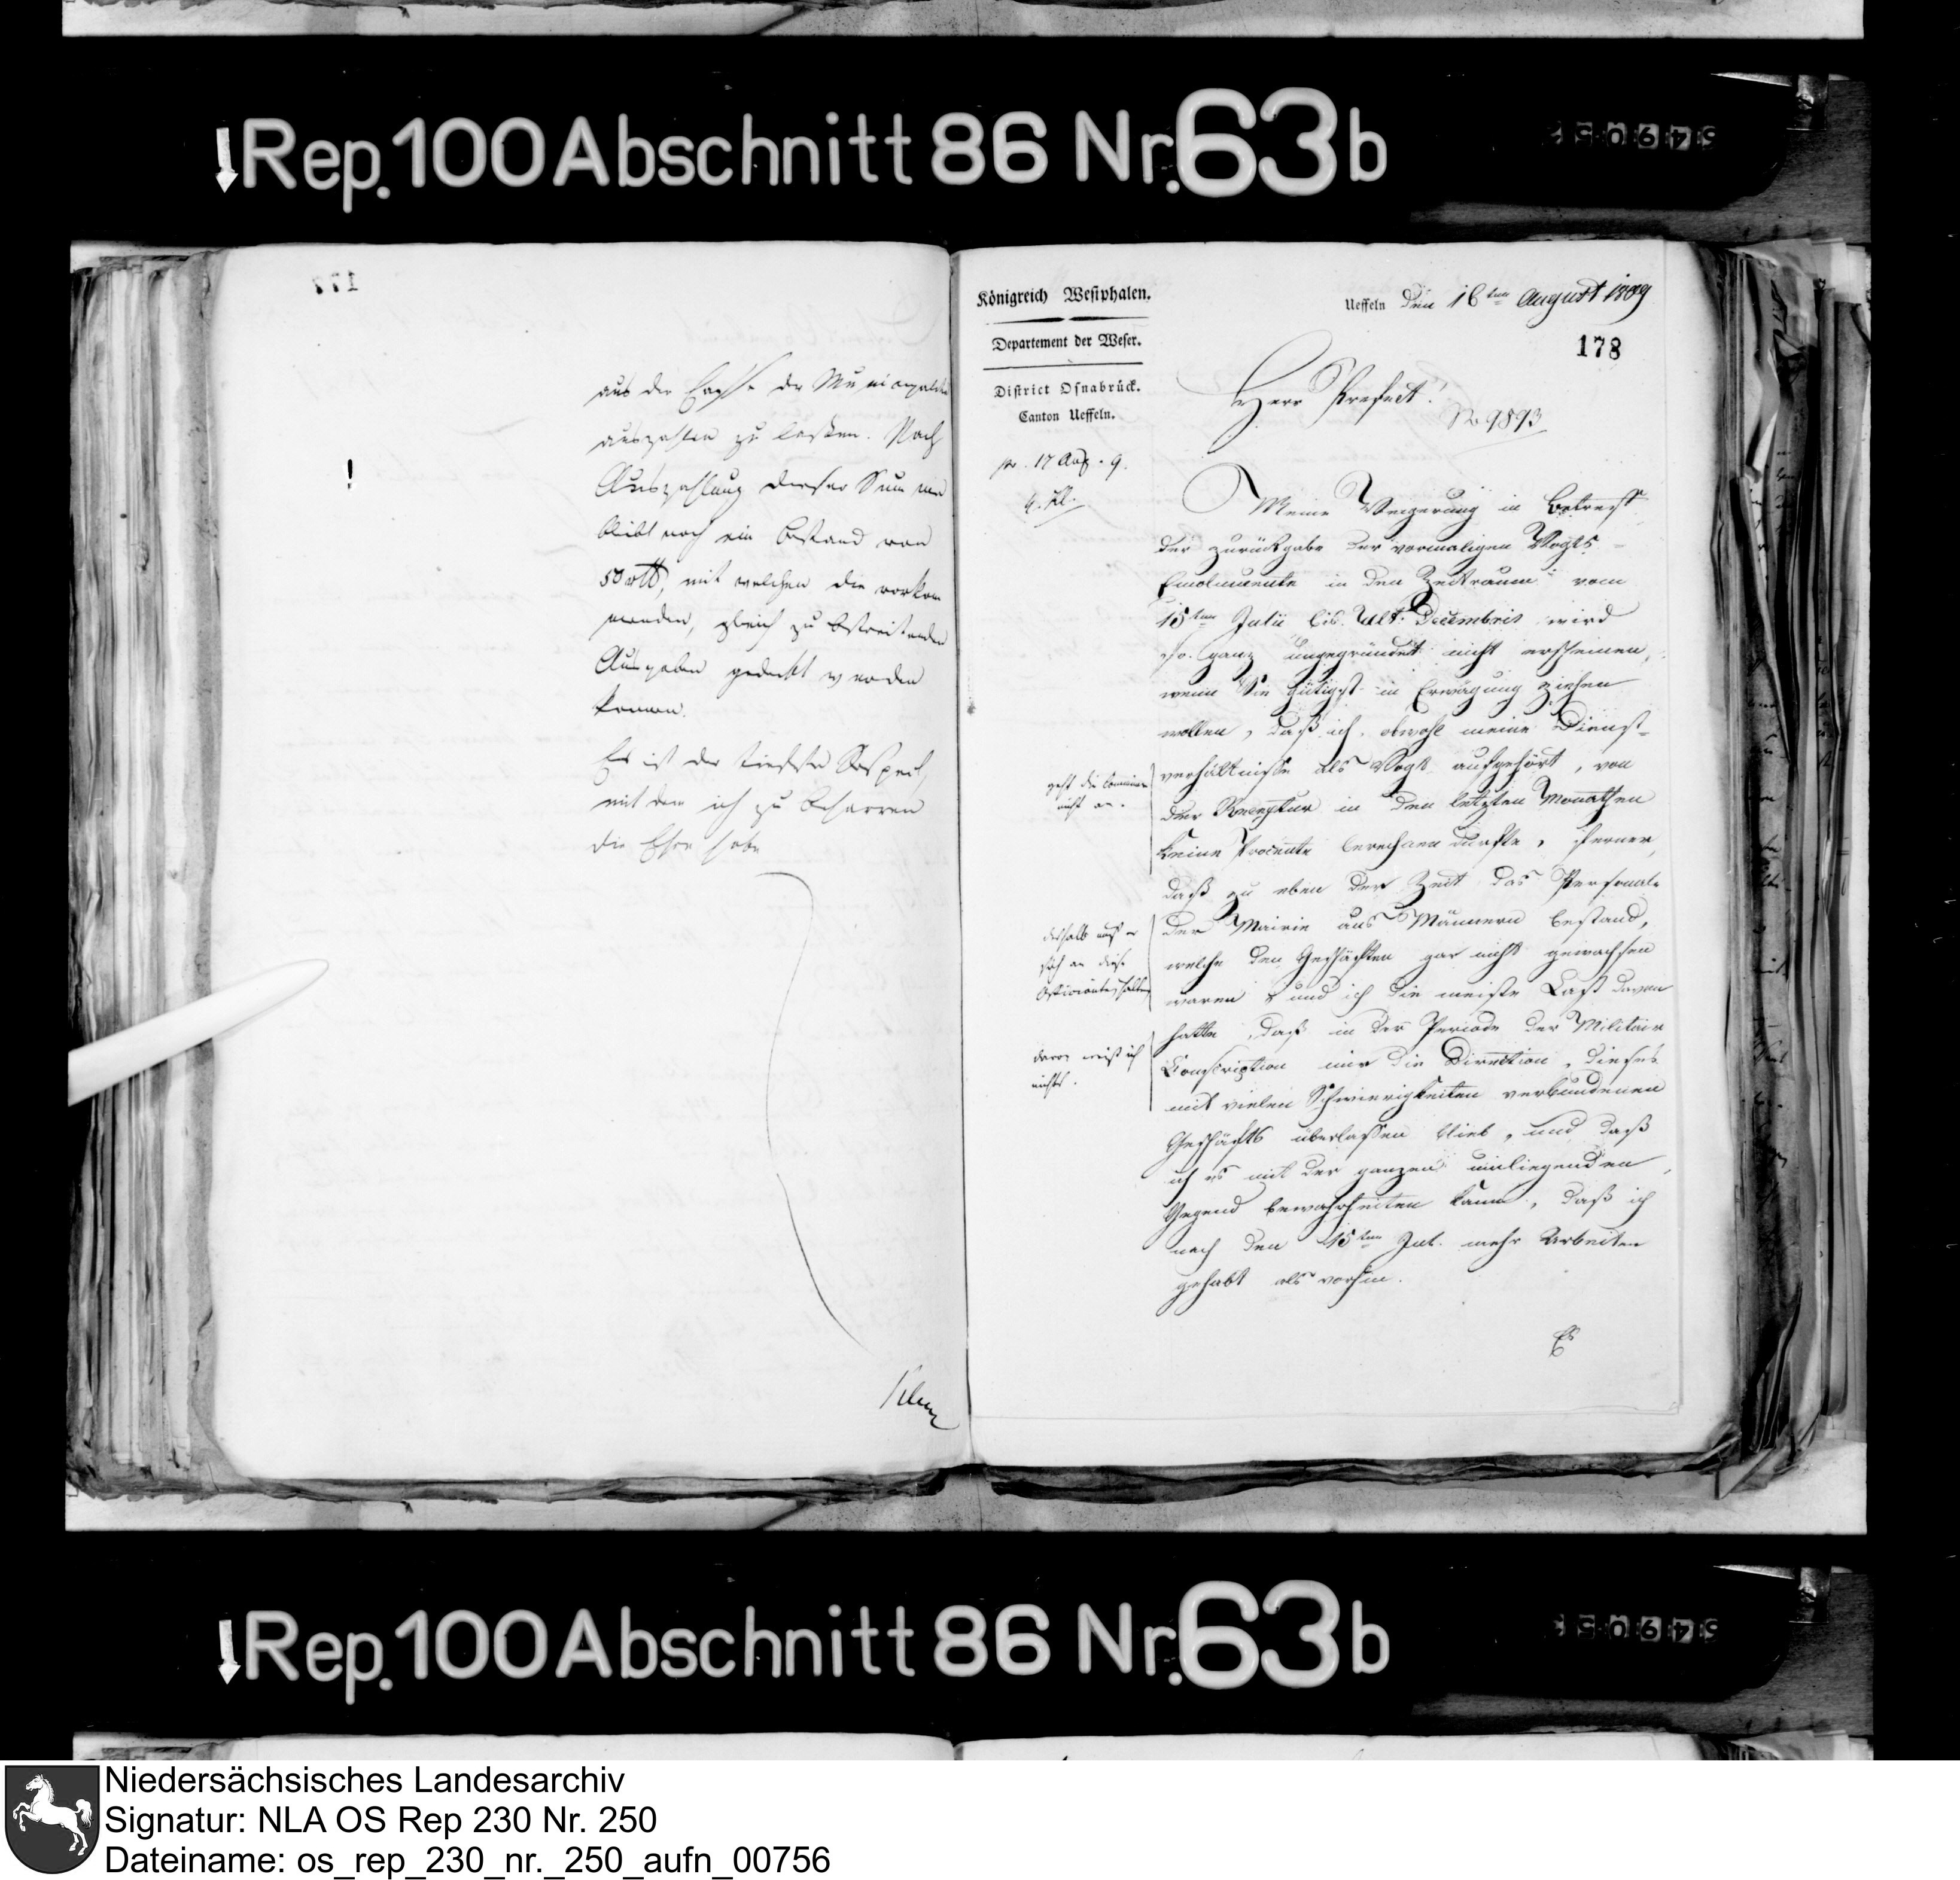 Rep. 100 Abschnitt 86 Nr. 63b
177
aus der Casse der Municipalität
auszahlen zu lassen. Nach
Auszahlung dieser Summe
bleibt noch ein Bestand von
50 rtl, mit welchen die vorkom
menden, gleich zu bestreitenden
Ausgaben gedeckt werden
können.
Es ist der tiefste Respect,
mit dem ich zu beharren
die Ehre habe
!
Königreich Westphalen.
Departement der Weser.
District Osnabrück.
Canton Ueffeln.
pr. 17 Aug. 9.
Ueffeln den 16ten August 1809
178
Herr Prefect!
No 9893
Meine Weigerung in Betreff
der zurückgabe der vormaligen Vogts
Emolumente in den Zeitraum vom
15ten Julii bis Ult. Decembris wird
so ganz ungegründet nicht erscheinen,
wenn Sie gütigst in Erwägung ziehen
wollen, daß ich, obwohl meine Dienst-
verhältnisse als Vogt aufgehört, von
der Receptur in den letzten Monathen
keine Procente berechnen durfte, ferner,
daß zu eben der Zeit das Personale
der Mairie aus Männern bestand,
welche den Geschäften gar nicht gewachsen
waren und ich die meiste Last davon
hatte, daß in der Periode der Militair
Conscription mir die Direction dieses
mit vielen Schwierigkeiten verbundenen
Geschäfts überlassen blieb, und daß
ich es mit der ganzen umliegenden
Gegend bewahrheiten kann, daß ich
nach den 15ten Jul. mehr Arbeiten
gehabt als vorhin.
Es
geht die Commune
nicht an.
deshalb muß er
sich an diese
halten
davon weiß ich
nichts.
Rep. 100 Abschnitt 86 Nr. 63b
Niedersächsisches Landesarchiv
Signatur: NLA OS Rep 230 Nr. 250
Dateiname: os_rep_230_nr._250_aufn_00756